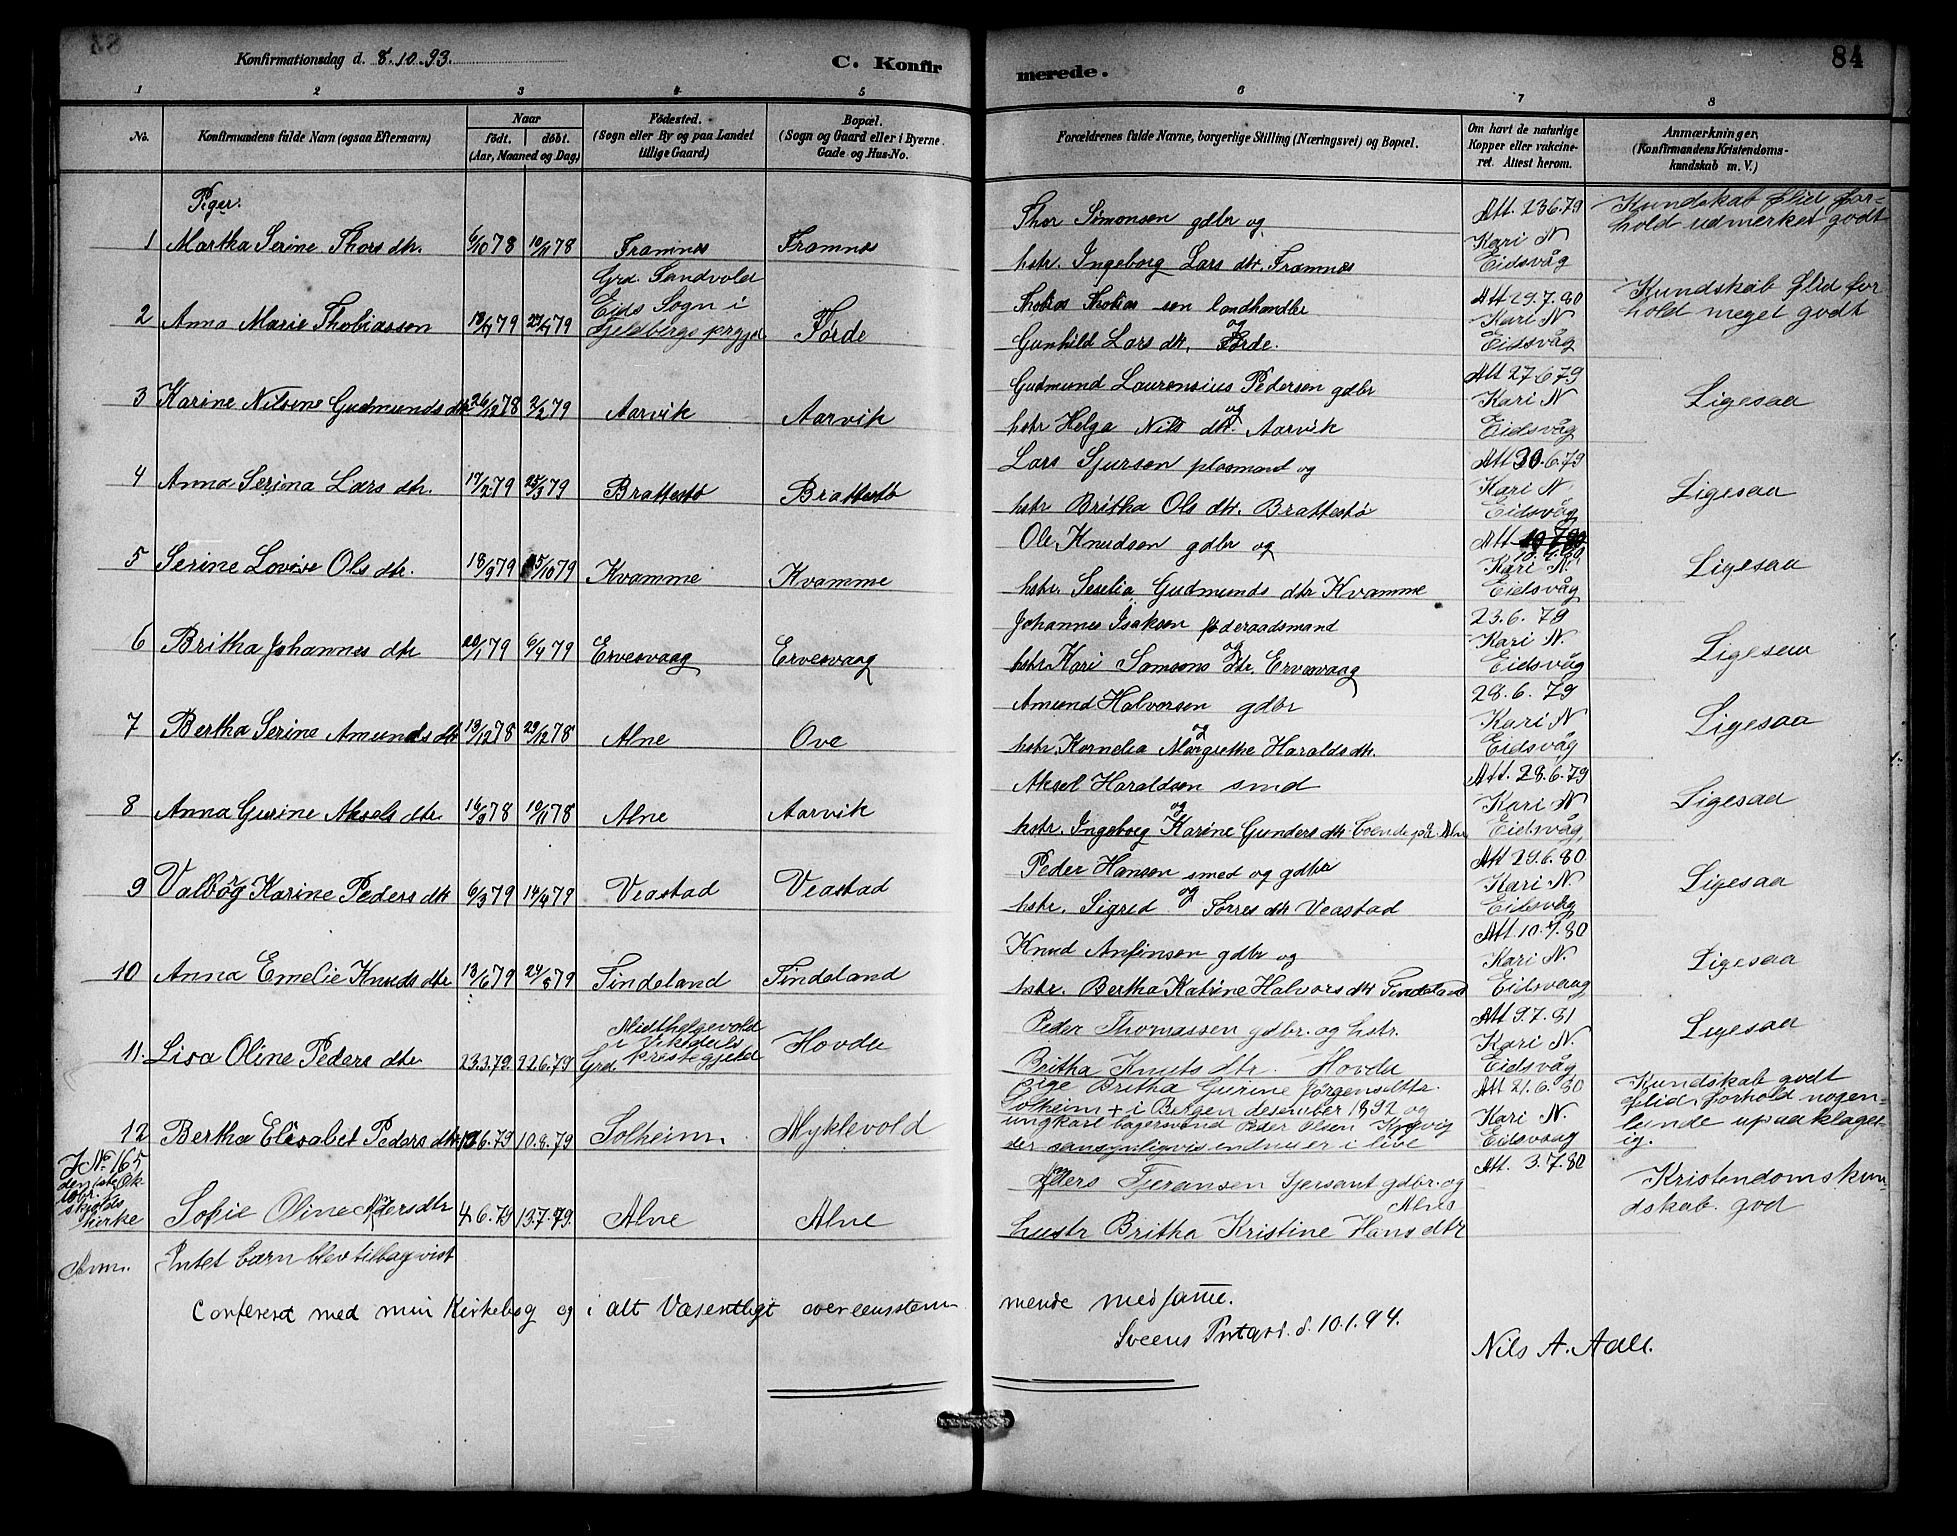 Konfirmationsdag d. 8.10.93.
C. Konfirmerede.
84
1 2 3 4 5 6 7 8
No.
Konfirmandens fulde Navn (ogsaa Efternavn)
Naar
født. døbt.
(Aar, Maaned og Dag)
Fødested.
(Sogn eller By og paa Landet
tillige Gaard)
Bopæl.
(Sogn og Gaard eller i Byerne
Gade og Hus-No.
Forældrenes fulde Navne, borgerlige Stilling (Næringsvei) og Bopæl.
Om havt de naturlige
Kopper eller vakcine-
ret. Attest herom.
Anmærkninger,
(Konfirmandens Kristendoms-
kundskab m. V.)
Piger:
1 Martha Serine Thors dtr. 6/10 78 10/11 78 Framnes Framnes
Thor Simonsen gdbr og
hstr. Ingeborg Lars dtr. Framnes
Att. 23.6.79
Kari N
Eidsvåg
Kundskab flid for-
hold udmerket godt
2 Anna Marie Thobiassen 79 79
Grd. Sandvold
Eids Sogn i
Førde
Thobias Thobias sen landhandler
og
Gunhild Lars dtr. Førde.
Att 29.7.80
Kari N
Eidsvåg
Kundskab flid for
hold meget godt
3 Karine Nilsine Gudmunds dtr 26/12 78 2/2 79 Aarvik Aarvik
Gudmund Laurensius Pedersen gdbr
og
hstr Helga Nils dtr. Aarvik
Att 27.6.79
Kari N
Eidsvåg
Ligesaa
4 Anna Serina Lars dtr. 17/2 79 25/3 79 Brattestø Brattestø
Lars Sjursen plasmand og
hstr Britha Ols dtr. Brattestø
Att 30.6.79
Kari N.
Eidsvåg
Ligesaa
5 Serine Lovise Ols dtr. 18/9 79 5/10 79 Kvamme Kvamme
Ole Knudsen gdbr og
hstr. Seselia Gudmunds dtr Kvamme
Att
Kari N.
Eidsvåg
Ligesaa
6 Britha Johannes dtr 20/1 79 6/4 79 Ervesvaag Ervesvaag
Johannes Isaksen føderaadsmand
og
hstr Kari Samsons dtr. Ervesvaag
23.6.79
Kari N.
Eidsvåg
Ligesaa
7 Bertha Serine Amunds dtr 13/12 78 29/12 78 Alne Ove
Amund Halvorsen gdbr
og
hstr. Kornelia Margrethe Haralds dtr.
28.6.79
Kari N
Eidsvåg
Ligesaa
8 Anna Gurine Aksels dtr. 16/9 78 10/11 78 Alne Aarvik
Aksel Haraldsen smed
og
hstr. Ingeborg Karine Gunders dtr boende på Alne
Att. 28.6.79
Kari N
Eidsvåg
Ligesaa
9 Valborg Karine Peders dtr 6/3 79 14/4 79 Veastad Veastad
Peder Hansen smed og gdbr
og
hstr. Sigrid Torres dtr Veastad
Att 29.6.80
Kari N.
Eidsvåg
Ligesaa
10 Anna Emelie Knuds dtr 13/6 79 24/8 79 Tindeland Tindeland
Knud Anfinsen gdbr og
hstr. Bertha Katrine Halvors dtr Tindeland
Att. 10.7.80
Kari N.
Eidsvaag
Ligesaa
11. Lisa Oline Peders dtr 23.3.79 22.6.79
Midthelgevold
i Vikedals
Grd. prestegjeld
Hovda
Peder Thomassen gdbr. og hstr.
Britha Knuts dtr. Hovda
Att 9.7.81
Kari N.
Eidsvåg
Ligesaa
12 Bertha Elisabet Peders dtr 6.79 10.8.79 Solheim. Myklevold
Pige Britha Gurine Jørgensdtter.
Solheim + i Bergen desember 1892 og
ungkarl bagersvend Peder Olsen
der sansynligvis endnu er i live
Att 21.6.80
Kari N.
Eidsvaag
Kundskab godt
flid, forhold nogen-
lunde upaaklagel-
ig.
J No 165
den 1ste Ok-
tobr. i
skjolds
kirke
Sofie Oline Aders dtr 4.6.79 13.7.79. Alne Alne
Aders Tjeransen Sjersant gdbr. og
Alne
hustr Britha Kristine Hans dtr
Att. 3.7.80
Kristendomskun-
dskab. god
Anm. Intet barn blev tilbagevist
Confereret med min Kirkebog og i alt Væsentligt overeensstem-
mende med samme.
Sveens Prstgrd. d. 10.1.94.
Nils A. Aall.